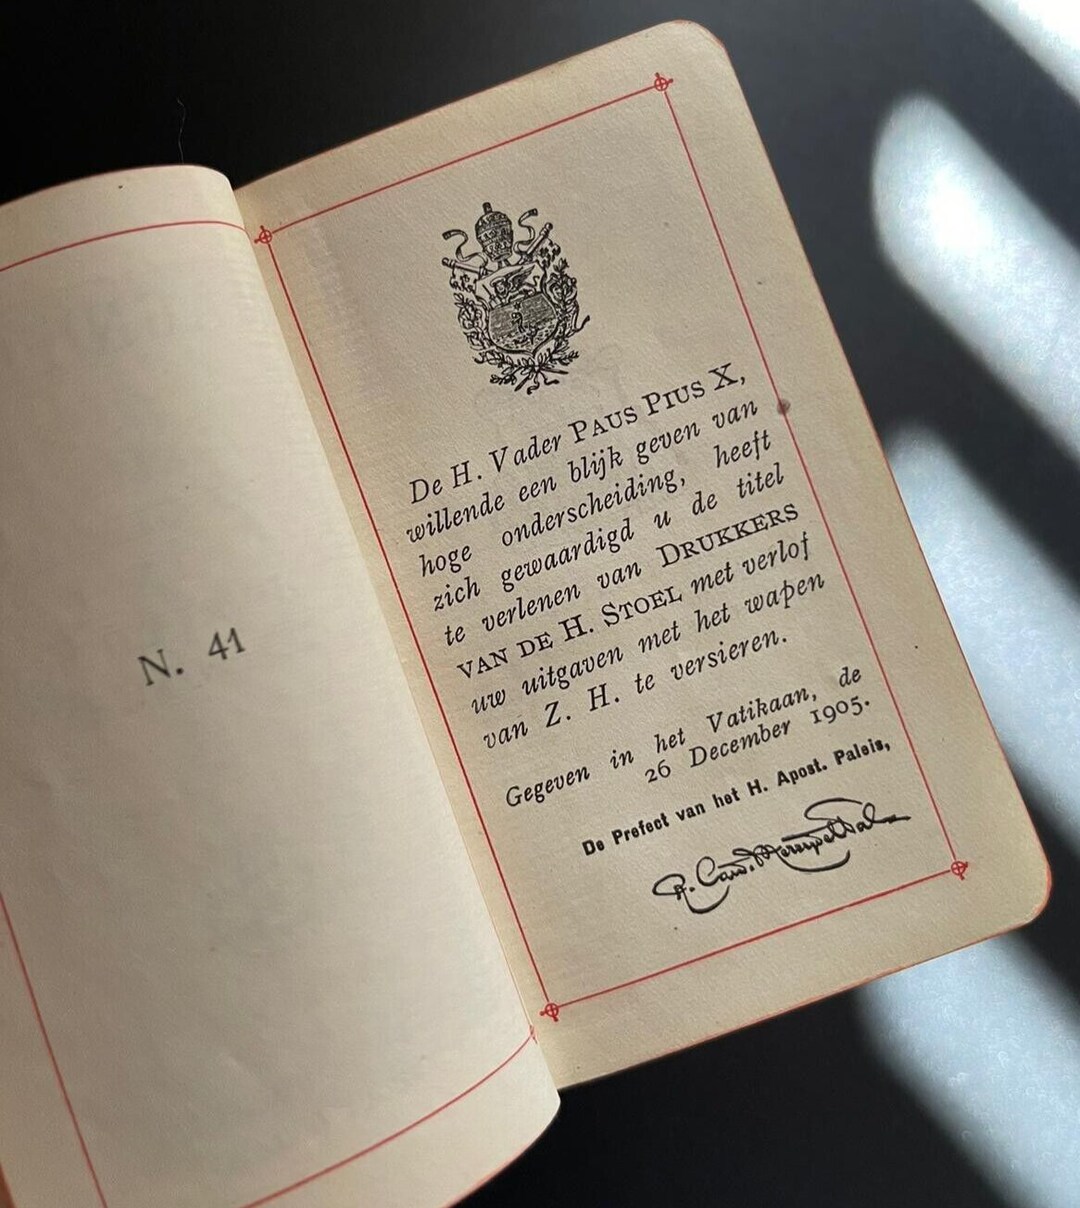 N. 41
De H. Vader PAUS PIUS X,
willende een blijk geven van
hoge onderscheiding, heeft
zich gewaardigd u de titel
te verlenen van DRUKKERS
VAN DE H. STOEL met verlof
uw uitgaven met het wapen
van Z. H. te versieren.
Gegeven in het Vatikaan, de
26 December 1905.
De Prefect van het H. Apost. Paleis,
R. Card. Merry del Val